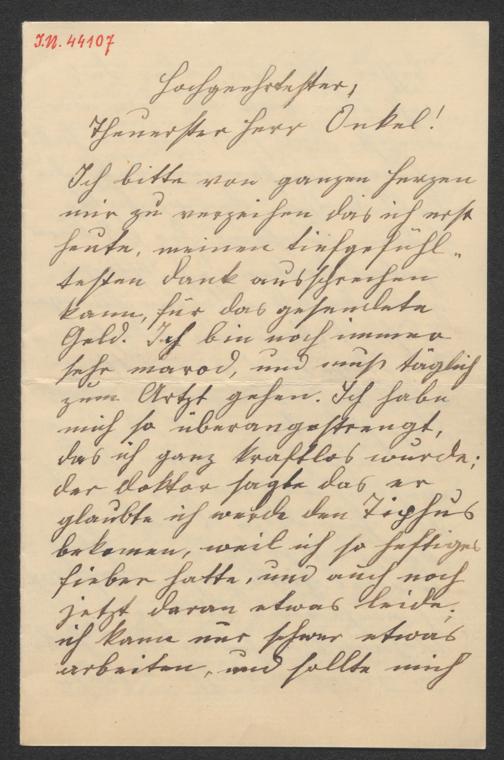 I.N. 44107
Hochgeehrtester,
Theuerster Herr Onkel!
Ich bitte von ganzen Herzen
mir zu verzeihen das ich erst
heute, meinen tiefgefühl-
testen Dank aussprechen
kann, für das gesendete
Geld. Ich bin noch immer
sehr marod, und muß täglich
zum Artzt gehen. Ich habe
mich so überangestrengt,
das ich ganz kraftlos wurde;
der Doktor sagte das er
glaubte ich werde den Tiphus
bekomen, weil ich so heftiges
Fieber hatte, und auch noch
jetzt daran etwas leide,
ich kann nur schwer etwas
arbeiten, und sollte mich